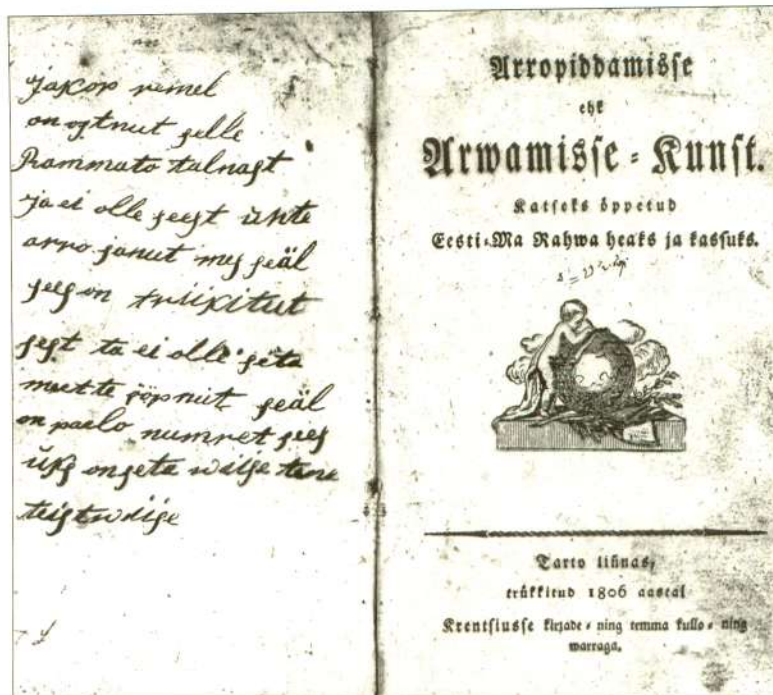 Jakop remel
on ostnut selle
Rammato talnast
ja ei olle seest ühte
arro sanut mes seäl
sees on trükitut
sest ta ei olle seta
mette söpnut seäl
on paelo numret sees
üks on seta wiise tene
teistwiise
Arropiddamisse
ehk
Arwamisse-Kunst.
Katseks öppetud
Eesti-Ma Rahwa heaks ja kassuks.
Tarto liñnas,
trükkitud 1806 aastal
Krentsiusse kirjade- ning temma kullo- ning
warraga.